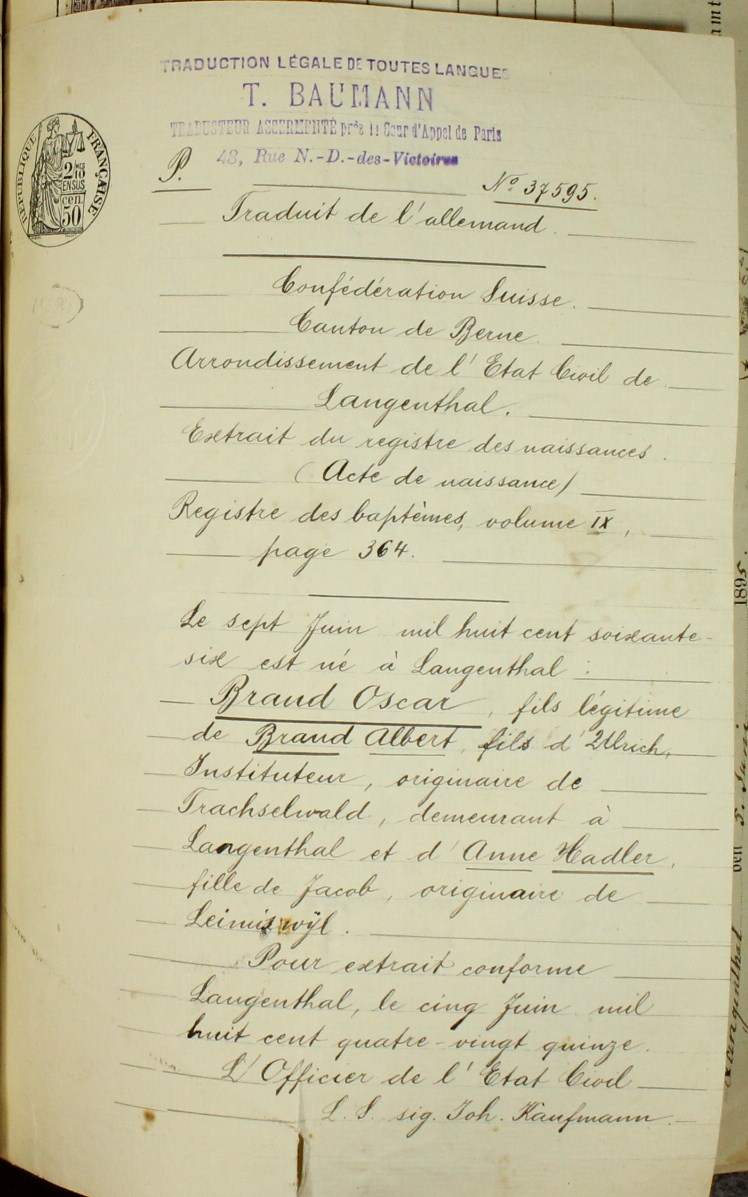 TRADUCTION LÉGALE DE TOUTES LANGUES
T. BAUMANN
TRADUCTEUR ASSERMENTÉ près la Cour d'Appel de Paris
48, Rue N.-D.-des-Victoires
RÉPUBLIQUE FRANÇAISE
2/10 EN SUS
50 cen.
P. No 37595.
Traduit de l'allemand.
Confédération Suisse.
Canton de Berne.
Arrondissement de l'Etat Civil de
Langenthal.
Extrait du registre des naissances.
(Acte de naissance)
Registre des baptêmes, volume IX,
page 364.
Le sept Juin mil huit cent soixante-
six est né à Langenthal :
Brand Oscar, fils légitime
de Brand Albert, fils d'Ulrich,
Instituteur, originaire de
Trachselwald, demeurant à
Langenthal et d'Anne Hadler,
fille de Jacob, originaire de
Leimiswÿl.
Pour extrait conforme
Langenthal, le cinq Juin mil
huit cent quatre-vingt quinze.
L'Officier de l'Etat Civil
L. S. sig. Joh. Käufmann.
1895.
den 5. Juni
Langenthal